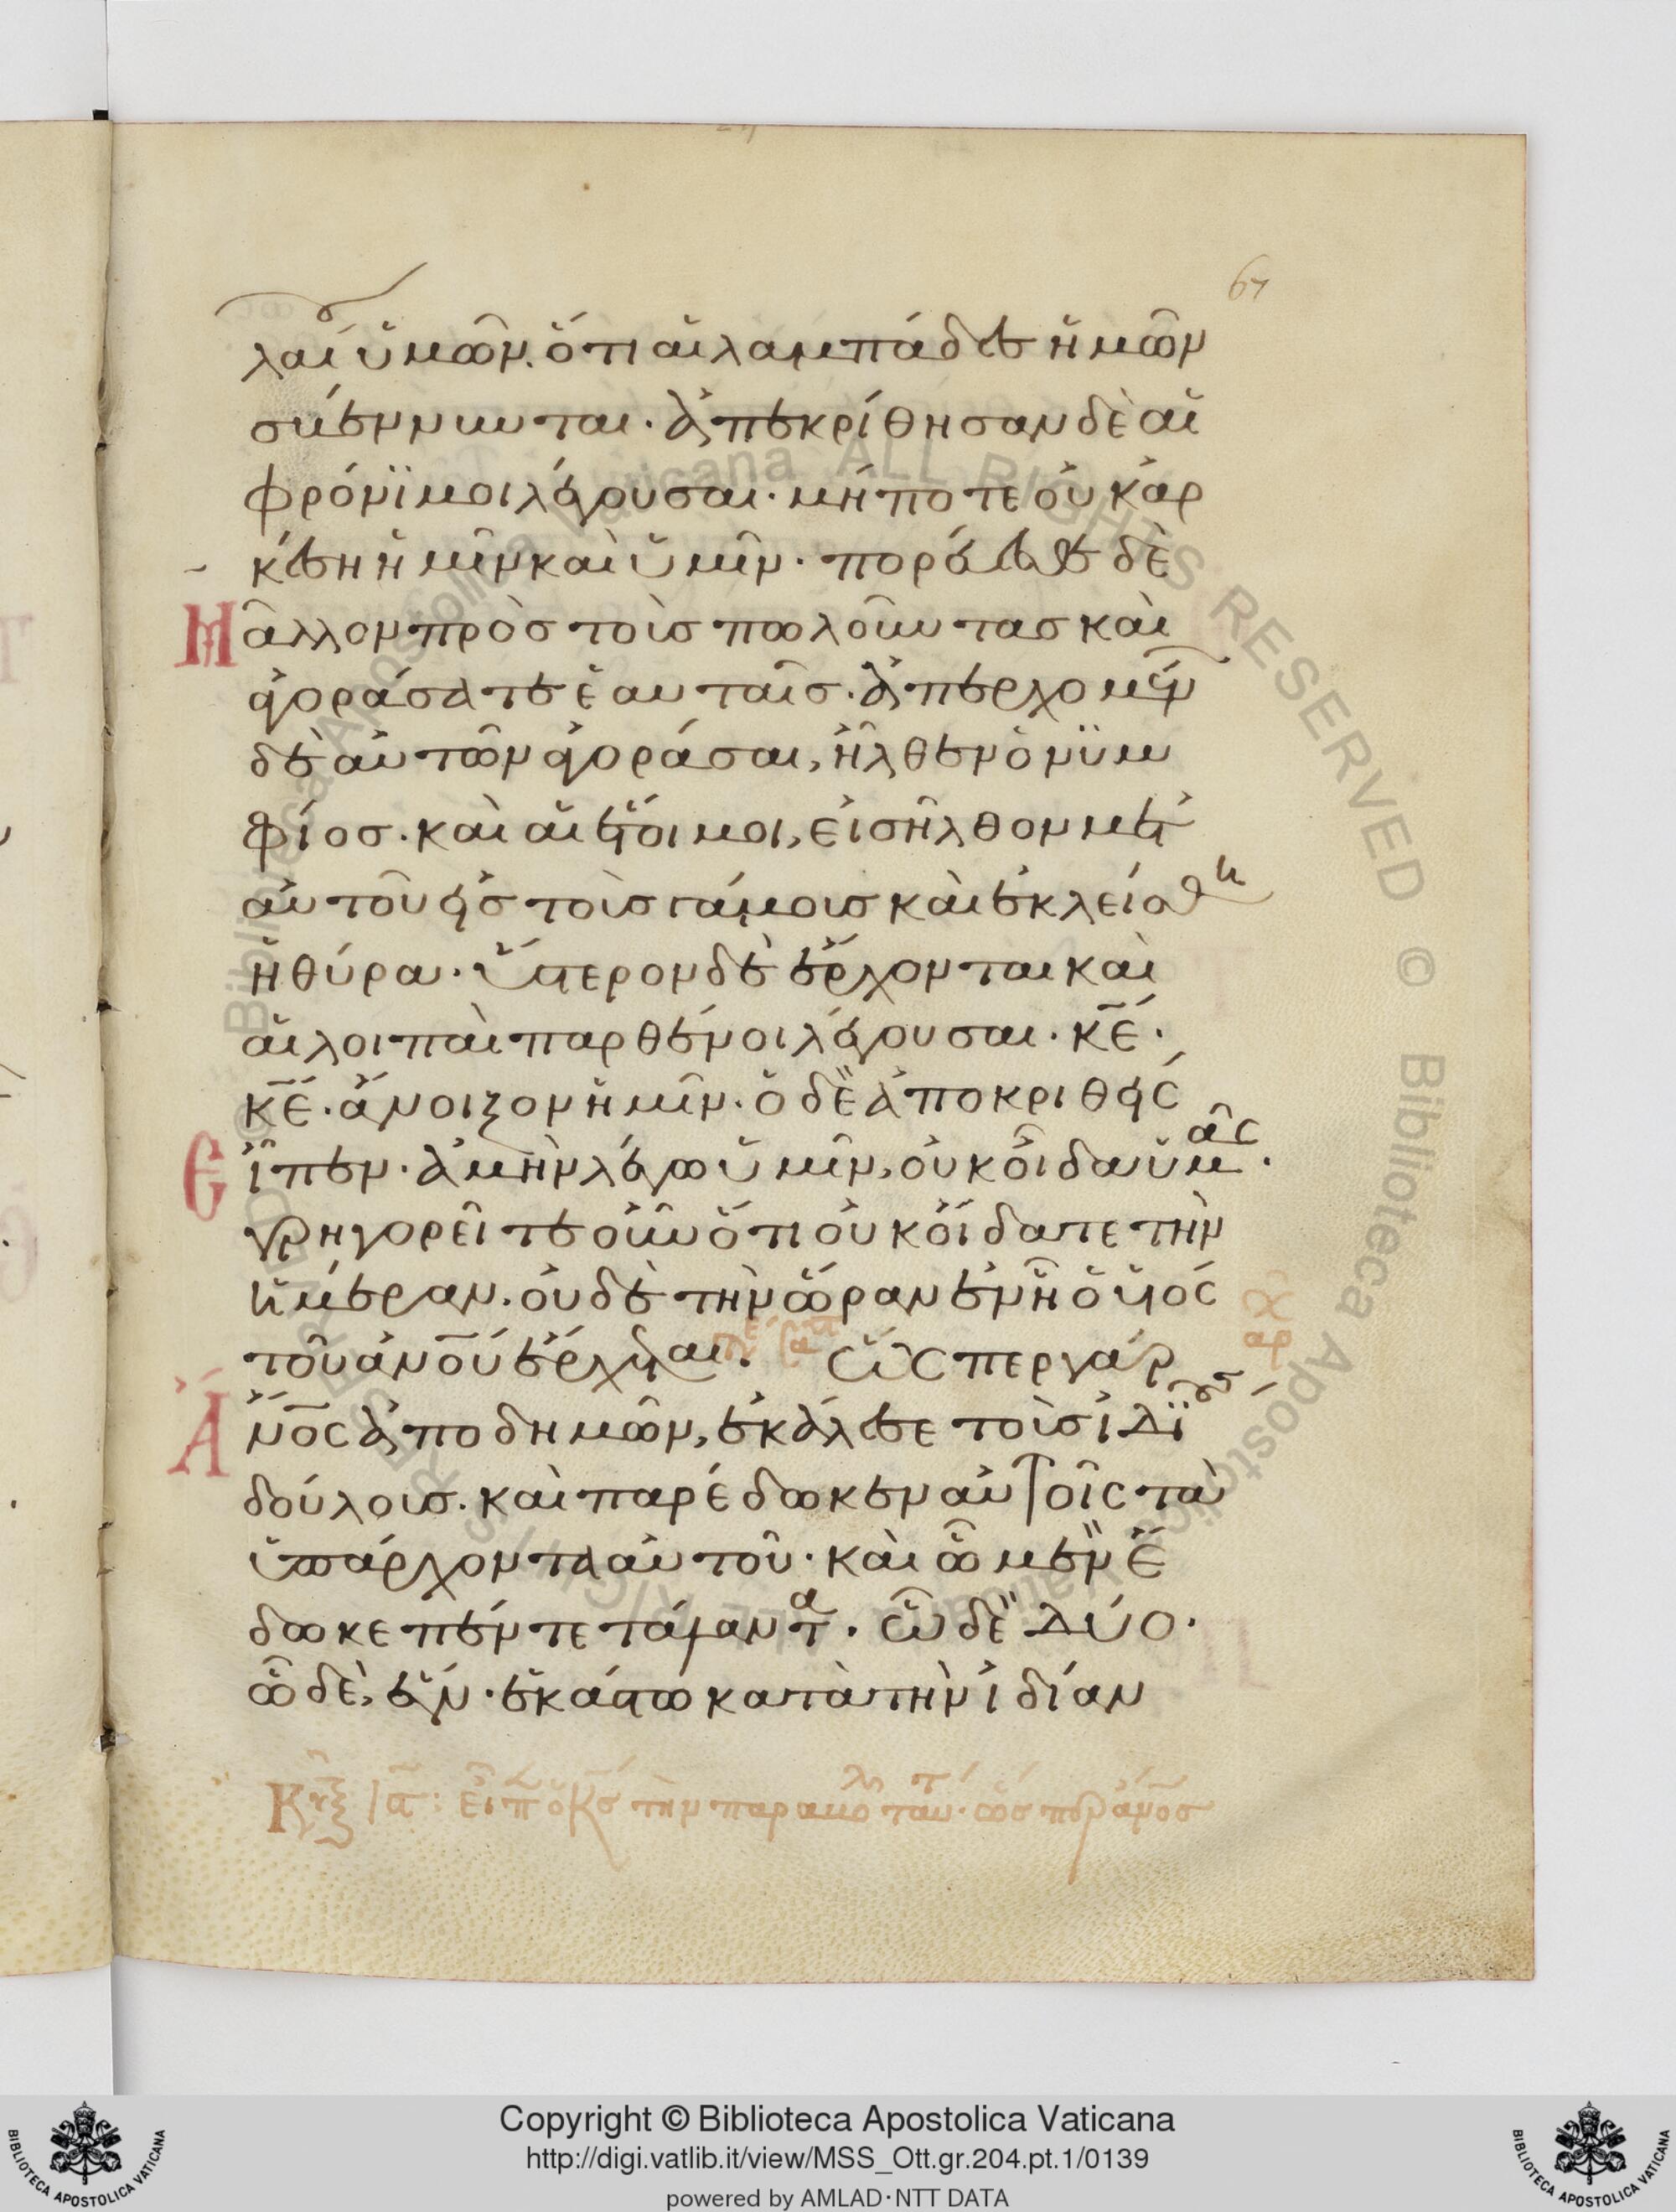 67
λαίου ὑμῶν. ὅτι αἱ λαμπάδες ἡμῶν
σβέννυνται. ἀπεκρίθησαν δὲ αἱ
φρόνϊμοι λέγουσαι. μήποτε οὐκ ἀρ
κέση ἡμῖν καὶ ὑμῖν. πορεύεσθε δὲ
Μᾶλλον πρὸσ τοὺσ πωλοῦντασ καὶ
ἀγοράσατε ἑαυταῖσ. ἀπερχομέν
δὲ αὐτῶν ἀγοράσαι, ἦλθεν ὁ νϋμ
φίοσ. καὶ αἱ ἕτοιμοι, εἰσῆλθον μετ'
αὐτοῦ εἰσ τοὺσ γάμουσ καὶ ἐκλείσθη
ἡ θύρα. ὕστερον δὲ ἔρχονται καὶ
αἱ λοιπαὶ παρθένοι λέγουσαι. κ̅ε̅.
κ̅ε̅. ἄνοιξον ἡμῖν. ὁ δὲ ἀποκριθείς
Εἶπεν. ἀμὴν λέγω ὑμῖν, οὐκ οἶδα ὑμᾶς.
γρηγορεῖτε οὖν ὅτι οὐκ οἴδατε τὴν
ἡμέραν. οὐδὲ τὴν ὥραν ἐν ἧ ὁ υἱός
τοῦ ἀν̅ο̅υ̅ ἔρχεται. Ὥσπερ γάρ
Ἄν̅ο̅ς ἀποδημῶν, ἐκάλεσε τοὺσ ἰδΐους
δούλουσ. καὶ παρέδωκεν αὐτοῖς τὰ
ὑπάρχοντα αὐτοῦ. καὶ ὧ μὲν ἔ
δωκε πέντε τάλαντα. ὧ δὲ δύο.
ὧ δὲ, ἕν. ἑκάστω κατὰ τὴν ἰδίαν
ὁ κ̅σ̅ τὴν παραβολὴν ταύτ. ὥσπερ ἄν̅ο̅σ
Copyright © Biblioteca Apostolica Vaticana
http://digi.vatlib.it/view/MSS_Ott.gr.204.pt.1/0139
powered by AMLAD·NTT DATA
BIBLIOTECA APOSTOLICA VATICANA
BIBLIOTECA APOSTOLICA VATICANA